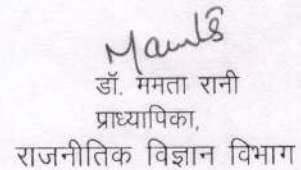 डॉ. ममता रानी
प्राध्यापिका,
राजनीतिक विज्ञान विभाग